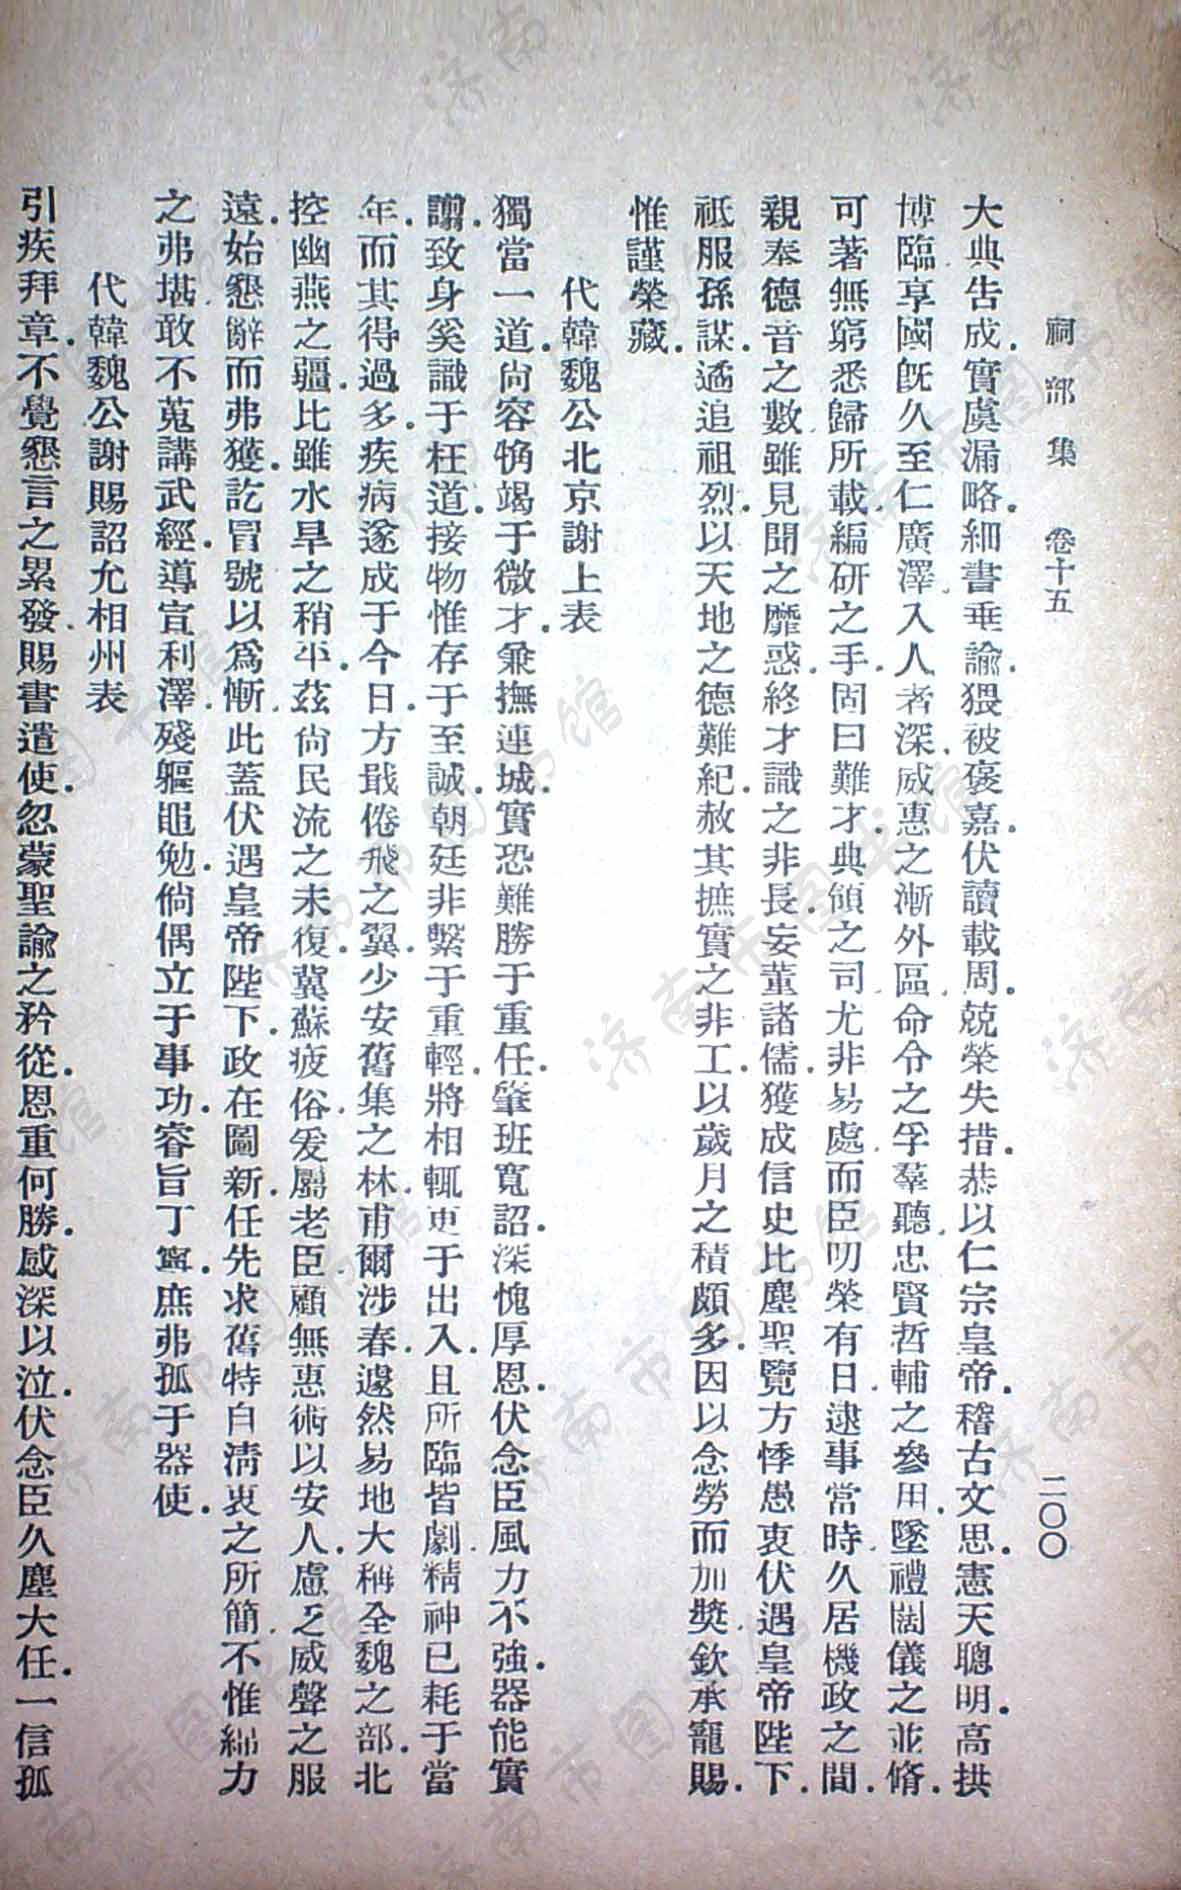 祠部集　卷十五　二〇〇
大典告成．實虞漏略．細書垂諭．猥被褒嘉．伏讀載周．兢榮失措．恭以仁宗皇帝．稽古文思．憲天聰明．高拱
博臨．享國旣久．至仁廣澤．入人者深．威惠之漸外區．命令之孚羣聽．忠賢哲輔之參用．墜禮闊儀之並脩．
可著無窮．悉歸所載．編研之手．固曰難才．典領之司．尤非易處．而臣叨榮有日．逮事當時．久居機政之間．
親奉德音之數．雖見聞之靡惑．終才識之非長．妄董諸儒．獲成信史．比塵聖覽．方悸愚衷．伏遇皇帝陛下．
祗服孫謀．遹追祖烈．以天地之德難紀．赦其摭實之非工．以歲月之積頗多．因以念勞而加獎．欽承寵賜．
惟謹榮藏．
代韓魏公北京謝上表
獨當一道．尙容殫竭于微才．兼撫連城．實恐難勝于重任．肇班寬詔．深愧厚恩．伏念臣風力不強．器能實
譾．致身奚識于枉道．接物惟存于至誠．朝廷非繫于重輕．將相輒更于出入．且所臨皆劇．精神已耗于當
年．而其得過多．疾病遂成于今日．方戢倦飛之翼．少安舊集之林．甫爾涉春．遽然易地．大稱全魏之部．北
控幽燕之疆．比雖水旱之稍平．茲尙民流之未復．冀蘇疲俗．爰屬老臣．顧無惠術以安人．慮乏威聲之服
遠．始懇辭而弗獲．訖冒號以爲慚．此蓋伏遇皇帝陛下．政在圖新．任先求舊．特自淸衷之所簡．不惟綿力
之弗堪．敢不蒐講武經．導宣利澤．殘軀黽勉．倘偶立于事功．睿旨丁寧．庶弗孤于器使．
代韓魏公謝賜詔允相州表
引疾拜章．不覺懇言之累發．賜書遣使．忽蒙聖諭之矜從．恩重何勝．感深以泣．伏念臣久塵大任．一信孤